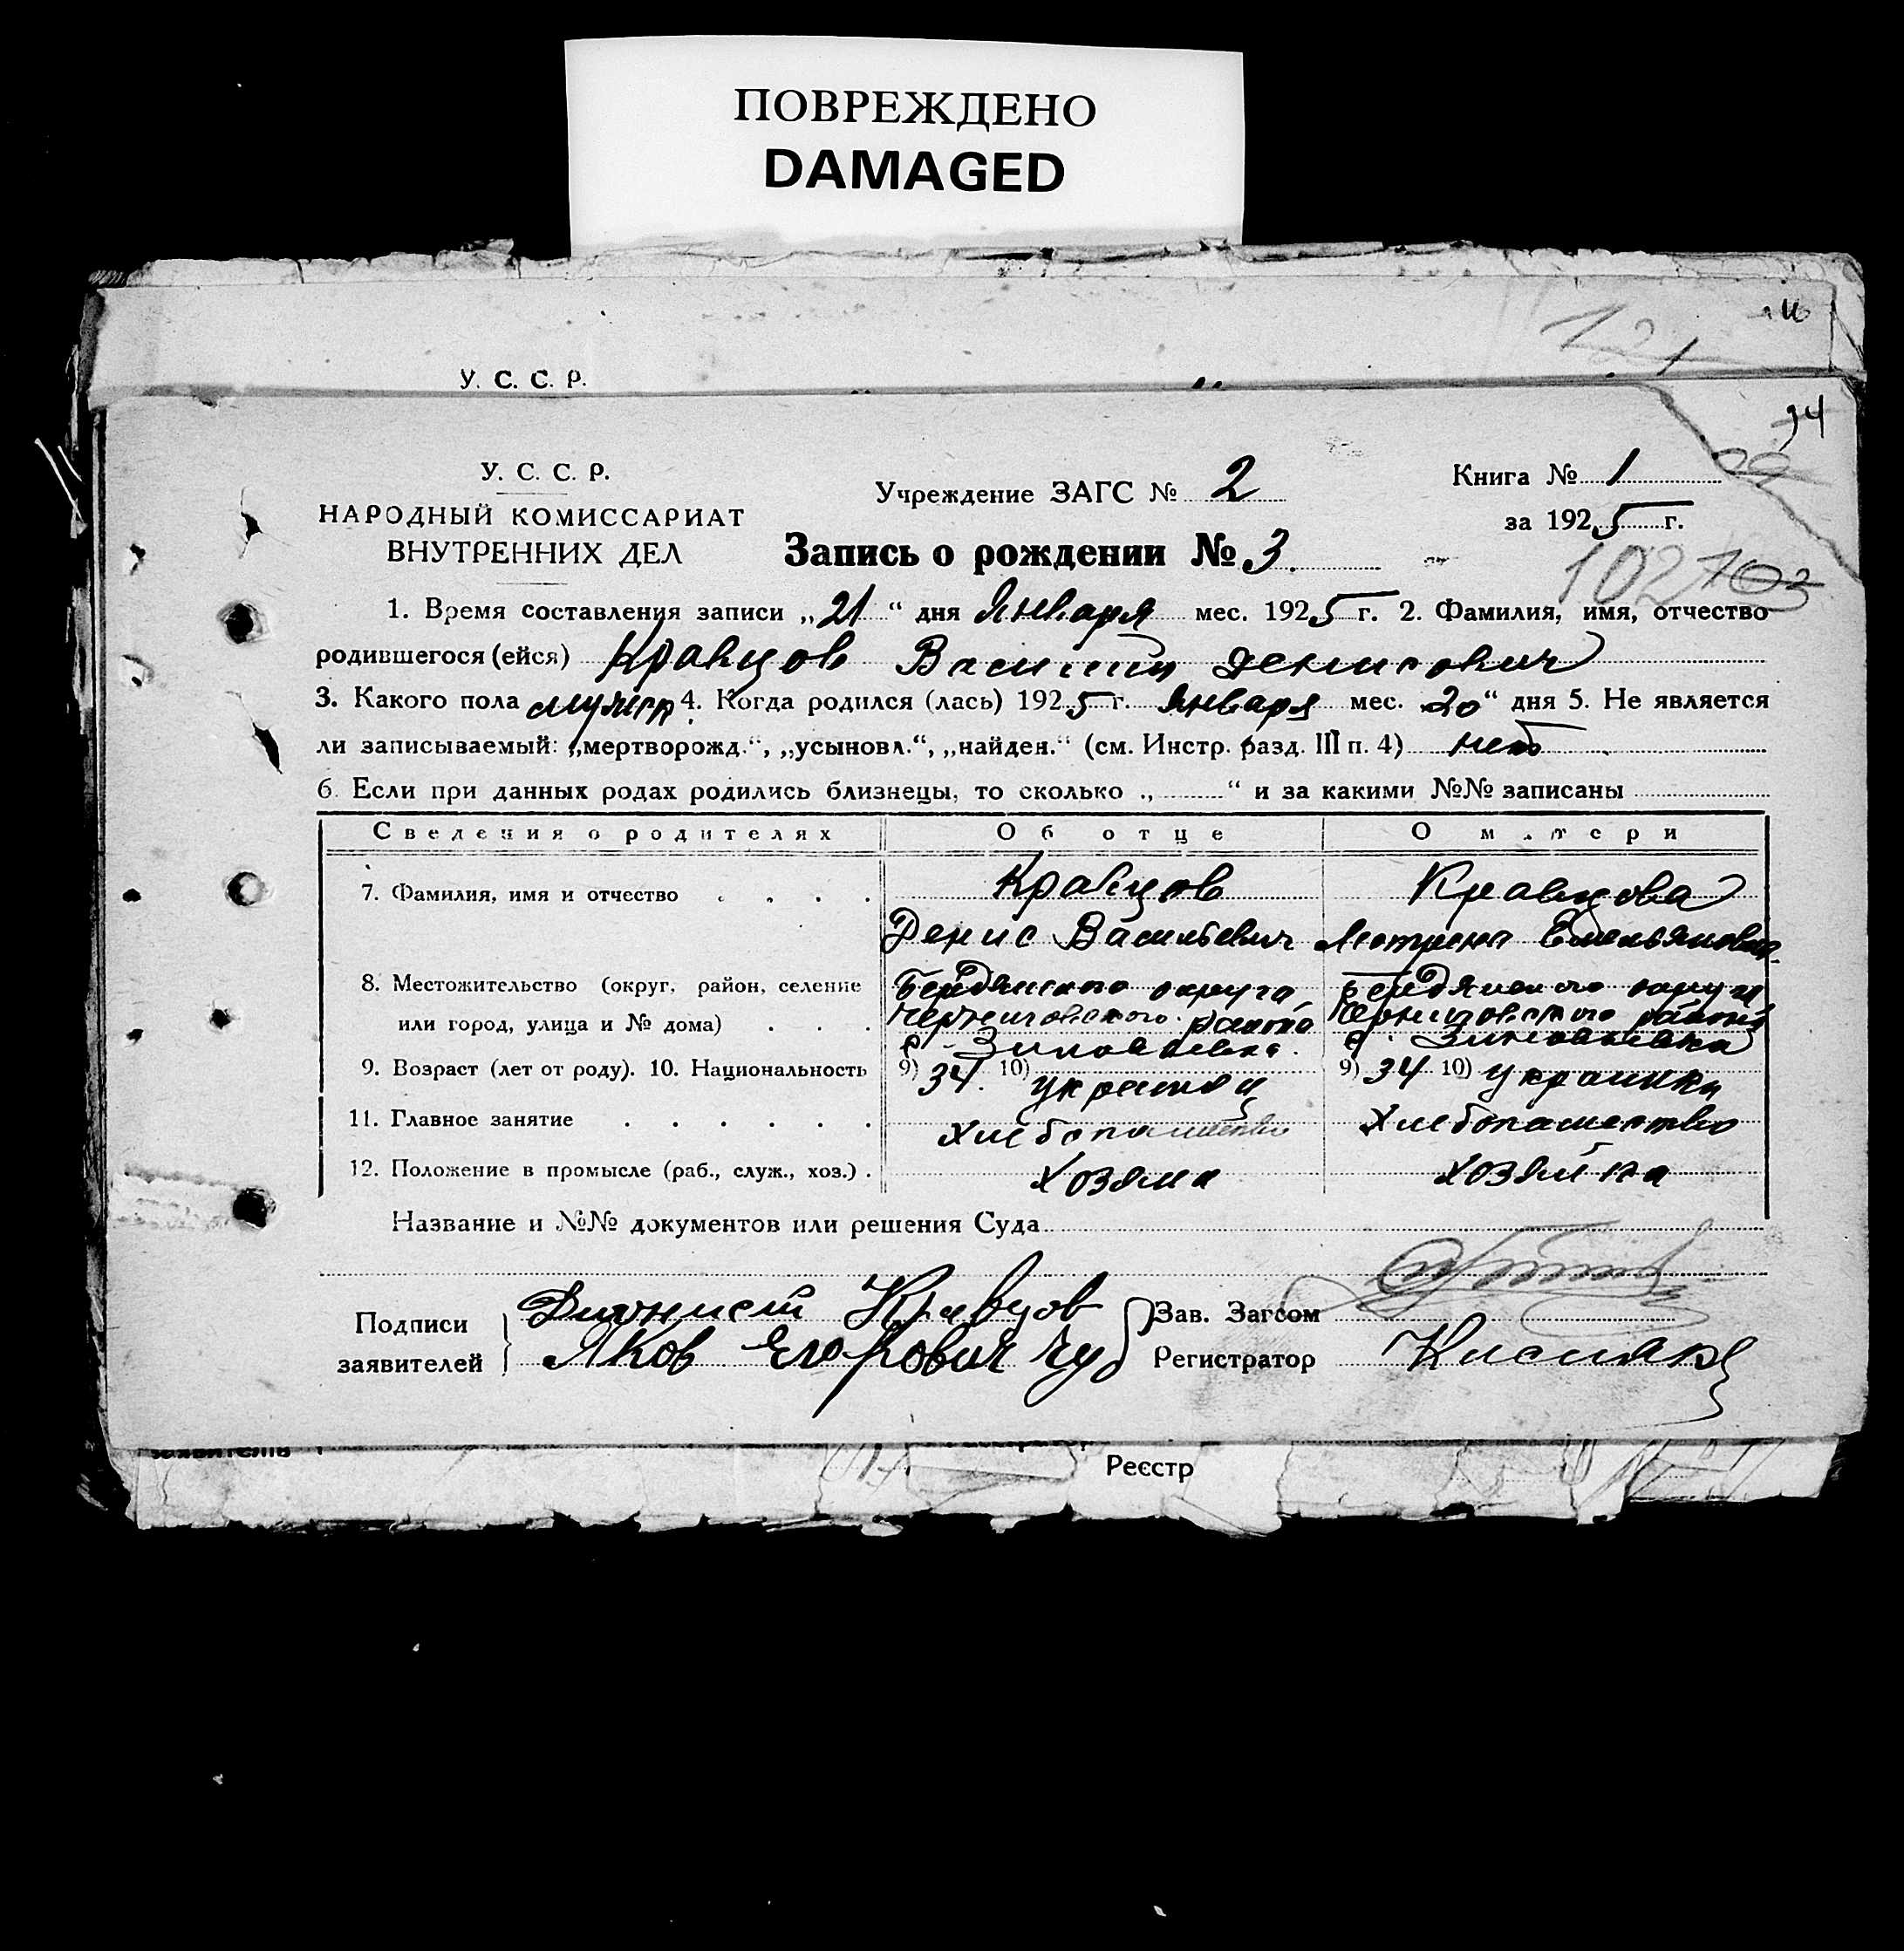 ПОВРЕЖДЕНО
DAMAGED
У. С. С. Р.
94
У. С. С. Р.
НАРОДНЫЙ КОМИССАРИАТ
ВНУТРЕННИХ ДЕЛ
Учреждение ЗАГС № 2
Книга № 1
за 1925 г.
Запись о рождении № 3.
102 103
1. Время составления записи „21“ дня Января мес. 1925 г. 2. Фамилия, имя, отчество
родившегося (ейся) Кравцов Василий Денисович
3. Какого пола мужск 4. Когда родился (лась) 1925 г. Января мес. 20“ дня 5. Не является
ли записываемый: „мертворожд.“, „усыновл.“, „найден.“ (см. Инстр. разд. III п. 4) нет
6. Если при данных родах родились близнецы, то сколько „ “ и за какими №№ записаны
Сведения о родителях Об отце О матери
7. Фамилия, имя и отчество Кравцов Кравцова
Денис Васильевич Мотрена Емельяновна
8. Местожительство (округ, район, селение Бердянского округа Бердянского округа
или город, улица и № дома) Черниговского района Черниговского района
с. Зиновьевка. с. Зиновьевка
9. Возраст (лет от роду). 10. Национальность 9) 34. 10) украинец 9) 34 10) украинка
11. Главное занятие хлебопашество хлебопашество
12. Положение в промысле (раб., служ., хоз.) хозяин хозяйка
Название и №№ документов или решения Суда
Подписи заявителей
Дионисий Кравцов
Яков Егорович Чуб
Зав. Загсом
Регистратор Кисиляк
заявитель
Реєстр